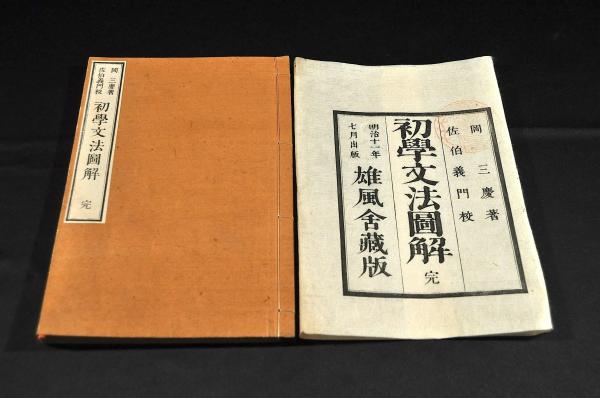 岡三慶著
佐伯義門校
初學文法圖解 完
岡三慶著
佐伯義門校
初學文法圖解 完
明治十一年
七月出版
雄風舍藏版